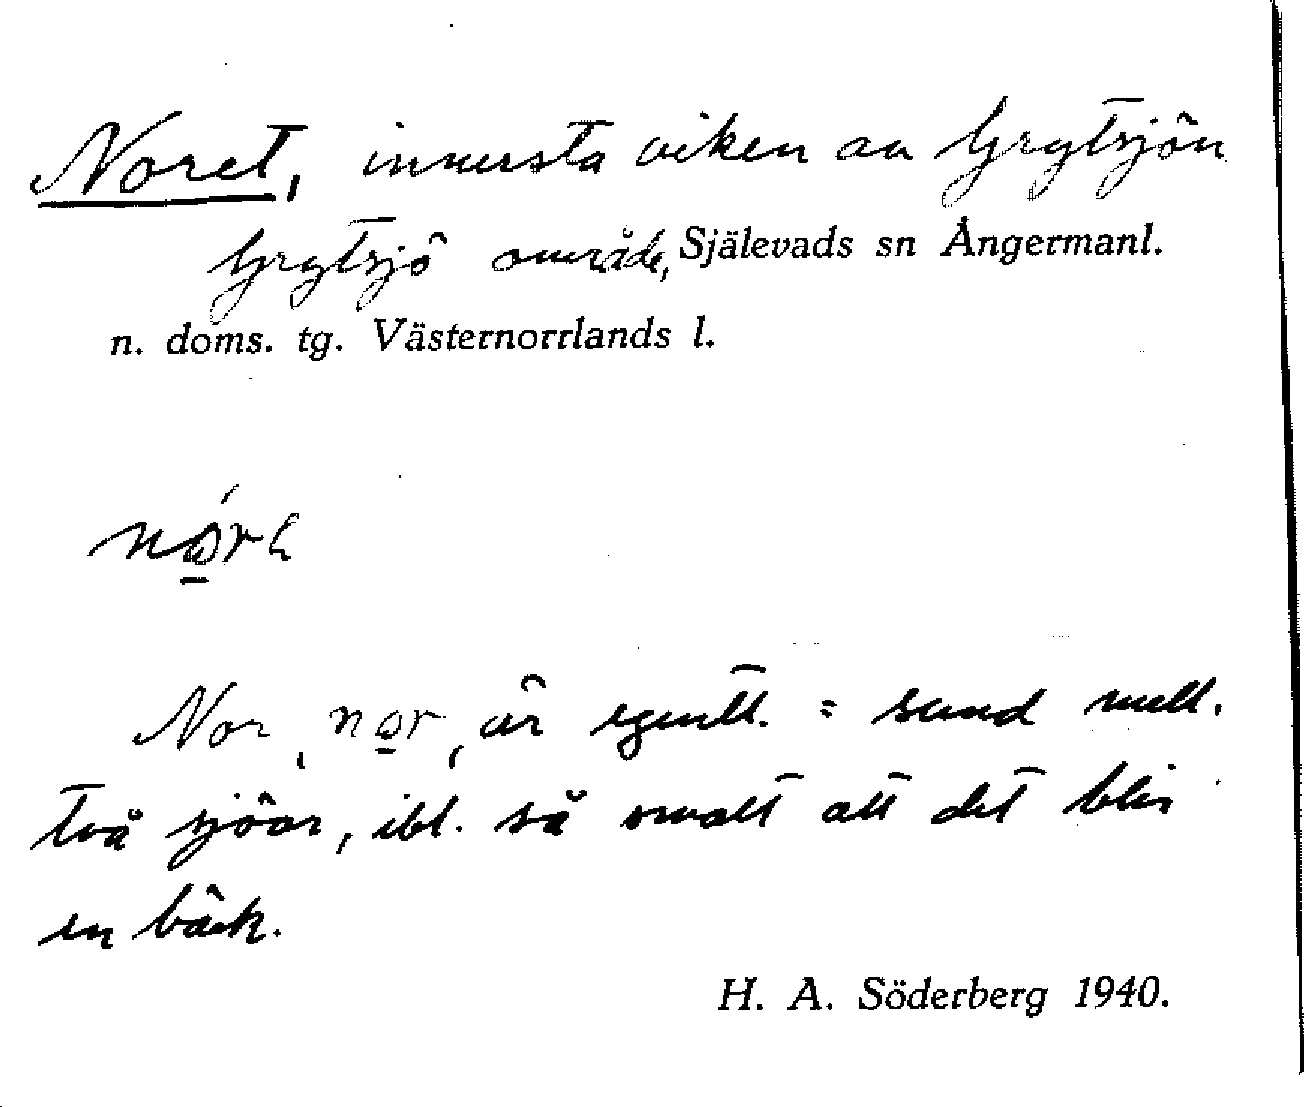 Noret, innersta viken av Grytsjön
Grytsjö område, Själevads sn Ångermanl.
n. doms. tg. Västernorrlands l.
Nor, nor, är egentl. = sund mell.
två sjöar, ibl. så smalt att det blir
en bäck.
H. A. Söderberg 1940.